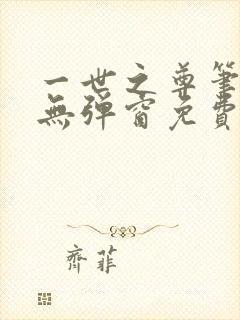 一世之尊筆
無彈窗免費
齊菲